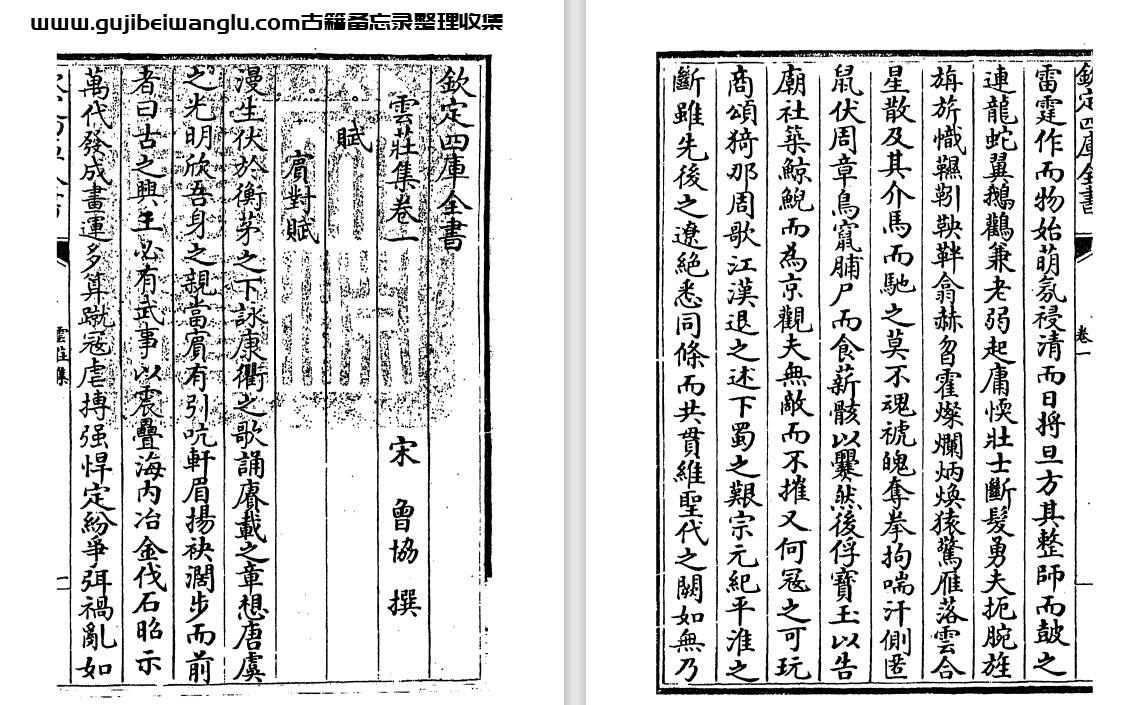 www.gujibeiwanglu.com古籍备忘录整理收集
欽定四庫全書
雲莊集卷一
宋 曾協 撰
賦
賓對賦
漫生伏於衡茅之下詠康衢之歌誦賡載之章想唐虞
之光明欣吾身之親當賓有引吭軒眉揚袂濶步而前
者曰古之興王必有武事以震疊海内冶金伐石昭示
萬代發成畫運多算蹴寇虐搏强悍定紛爭弭禍亂如
雲莊集
一
欽定四庫全書
卷一
雷霆作而物始萌氛祲清而日將旦方其整師而鼓之
連龍蛇翼鵝鸛兼老弱起庸懦壯士斷髮勇夫扼腕旌
旃旂幟韅靷鞅靽翕赫曶霍燦爛炳煥猿驚雁落雲合
星散及其介馬而馳之莫不魂褫魄奪拳拘喘汗側匿
鼠伏周章鳥竄脯尸而食薪骸以爨然後俘寶玉以告
廟社築鯨鯢而為京觀夫無敵而不摧又何冦之可玩
商頌猗那周歌江漢退之述下蜀之艱宗元紀平淮之
斷雖先後之遼絶悉同條而共貫維聖代之闕如無乃